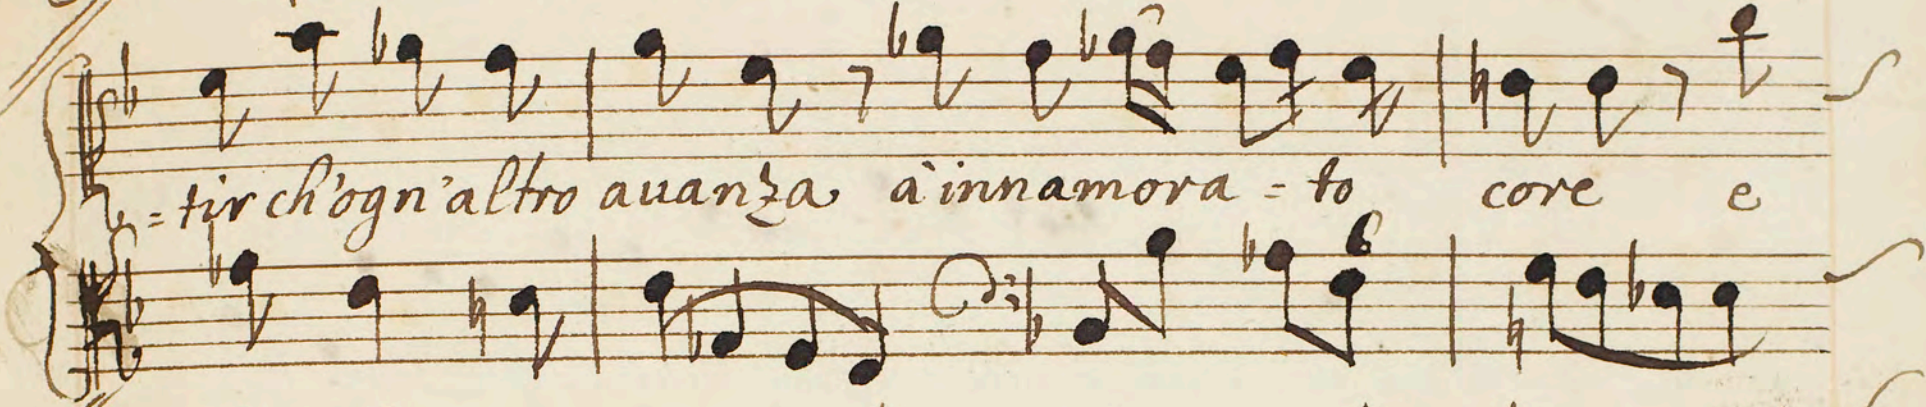 =tir ch'ogn'altro auanza à innamora=to core e
6